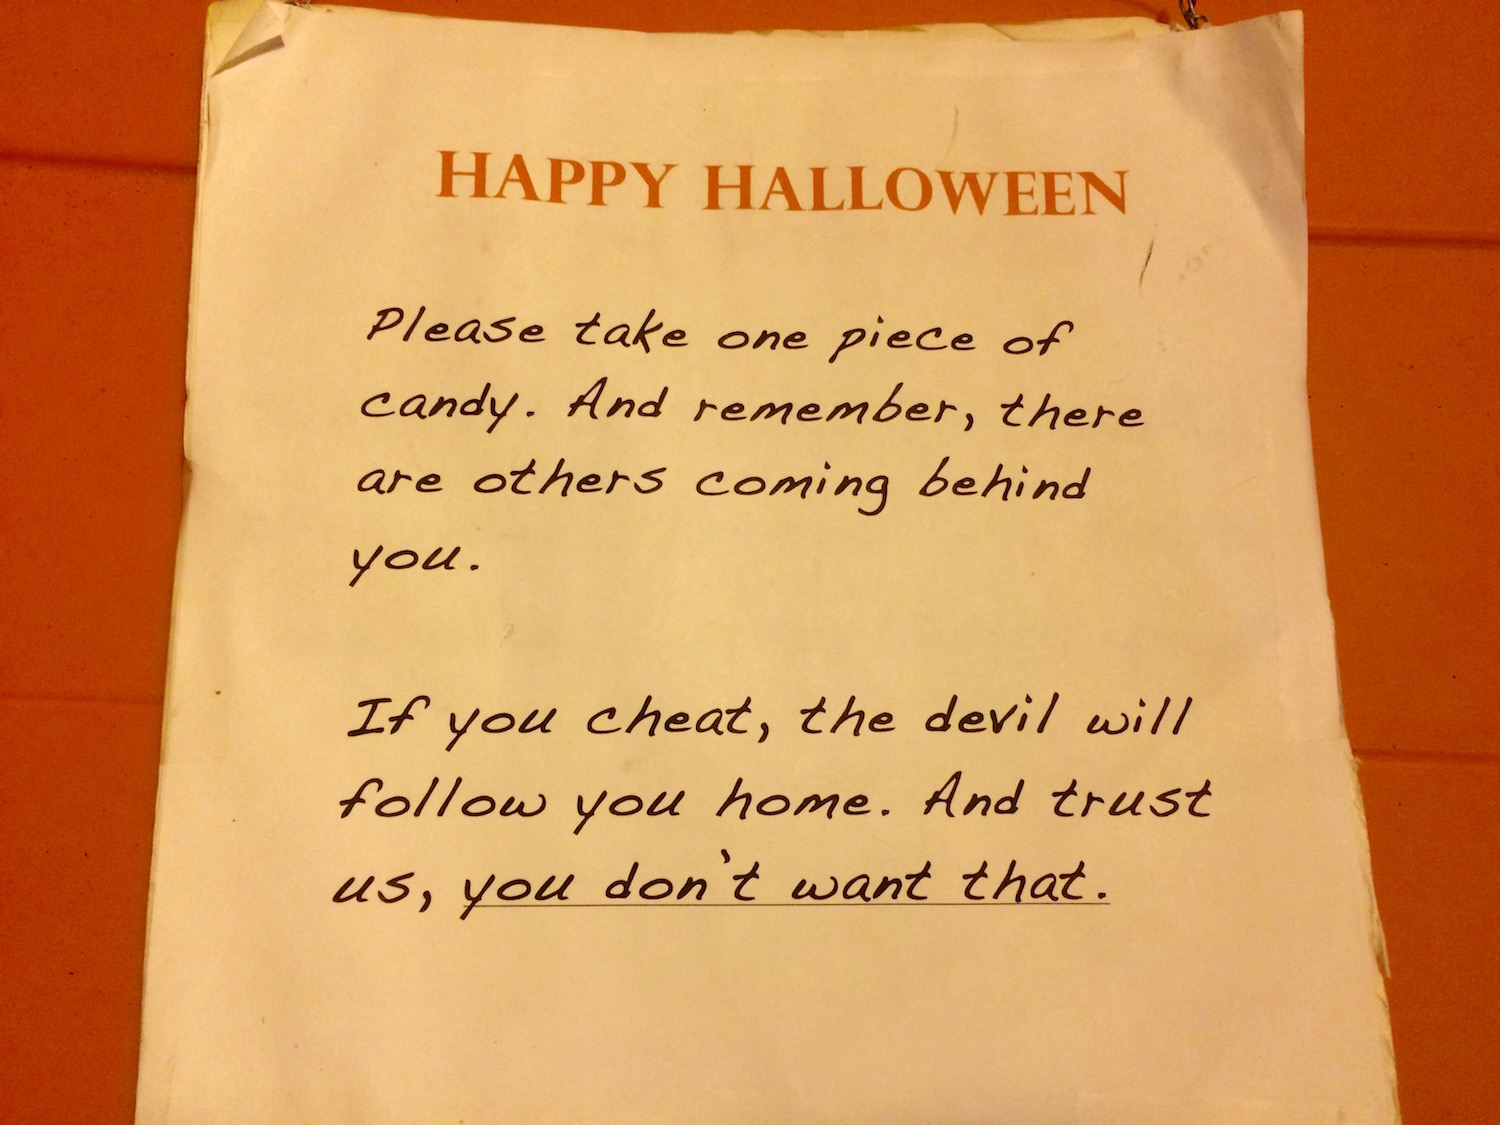 HAPPY HALLOWEEN
Please take one piece of
candy. And remember, there
are others coming behind
you.
If you cheat, the devil will
follow you home. And trust
us, you don't want that.